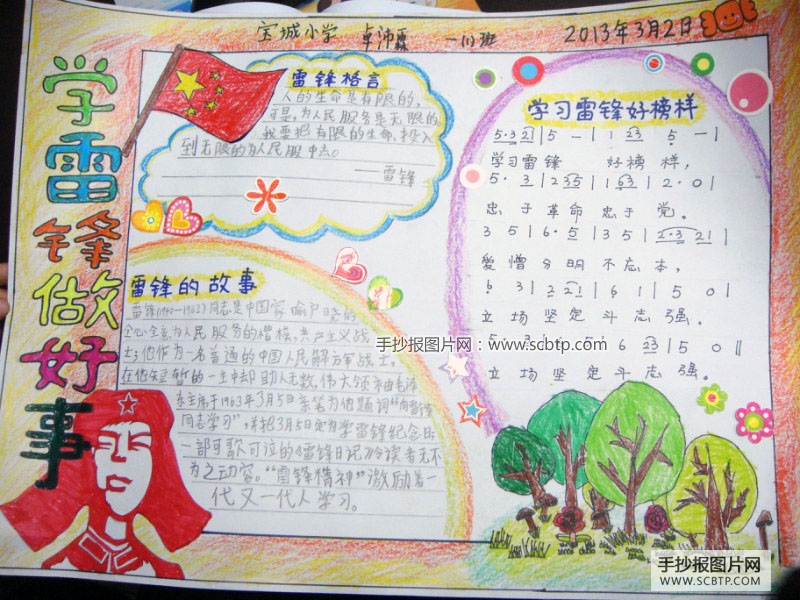 宝城小学 卓沛霖 一(1)班 2013年3月2日
学雷锋做好事
雷锋格言
人的生命是有限的,
可是,为人民服务是无限的
我要把有限的生命,投入
到无限的为人民服中去。
——雷锋
雷锋的故事
雷锋(1940-1962)同志是中国家喻户晓的
全心全意为人民服务的楷模,共产主义战
士;他作为一名普通的中国人民解放军战士,
在他短暂的一生中却助人无数,伟大领袖毛泽
东主席于1963年3月5日亲笔为他题词“向雷锋
同志学习”,并把3月5日定为学雷锋纪念日
一部可歌可泣的《雷锋日记》令读者无不
为之动容。“雷锋精神”激励着一
代又一代人学习。
学习雷锋好榜样
5·3 2 | 5 – | 1 2 3 5 – |
学习雷锋 好榜样,
5· 3 | 2 3 5 | 1 6 3 | 2· 0 |
忠于革命忠于党。
3 5 | 6· 5 | 3 5 | 2·3 2 1 |
爱憎分明不忘本,
6 3 | 2 2 1 | 6 1 | 5 0 |
立场坚定斗志强。
立场坚定斗志强。
手抄报图片网:www.scbtp.com
手抄报图片网
WWW.SCBTP.COM